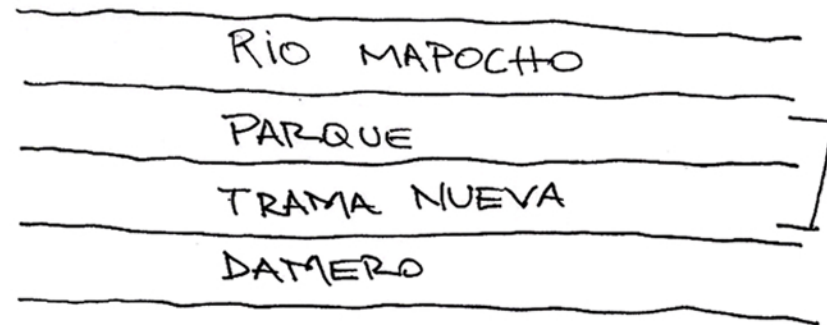 RIO MAPOCHO
PARQUE
TRAMA NUEVA
DAMERO